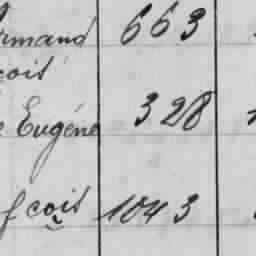 Armand 663
çois
Eugéne 328
fçois 1043